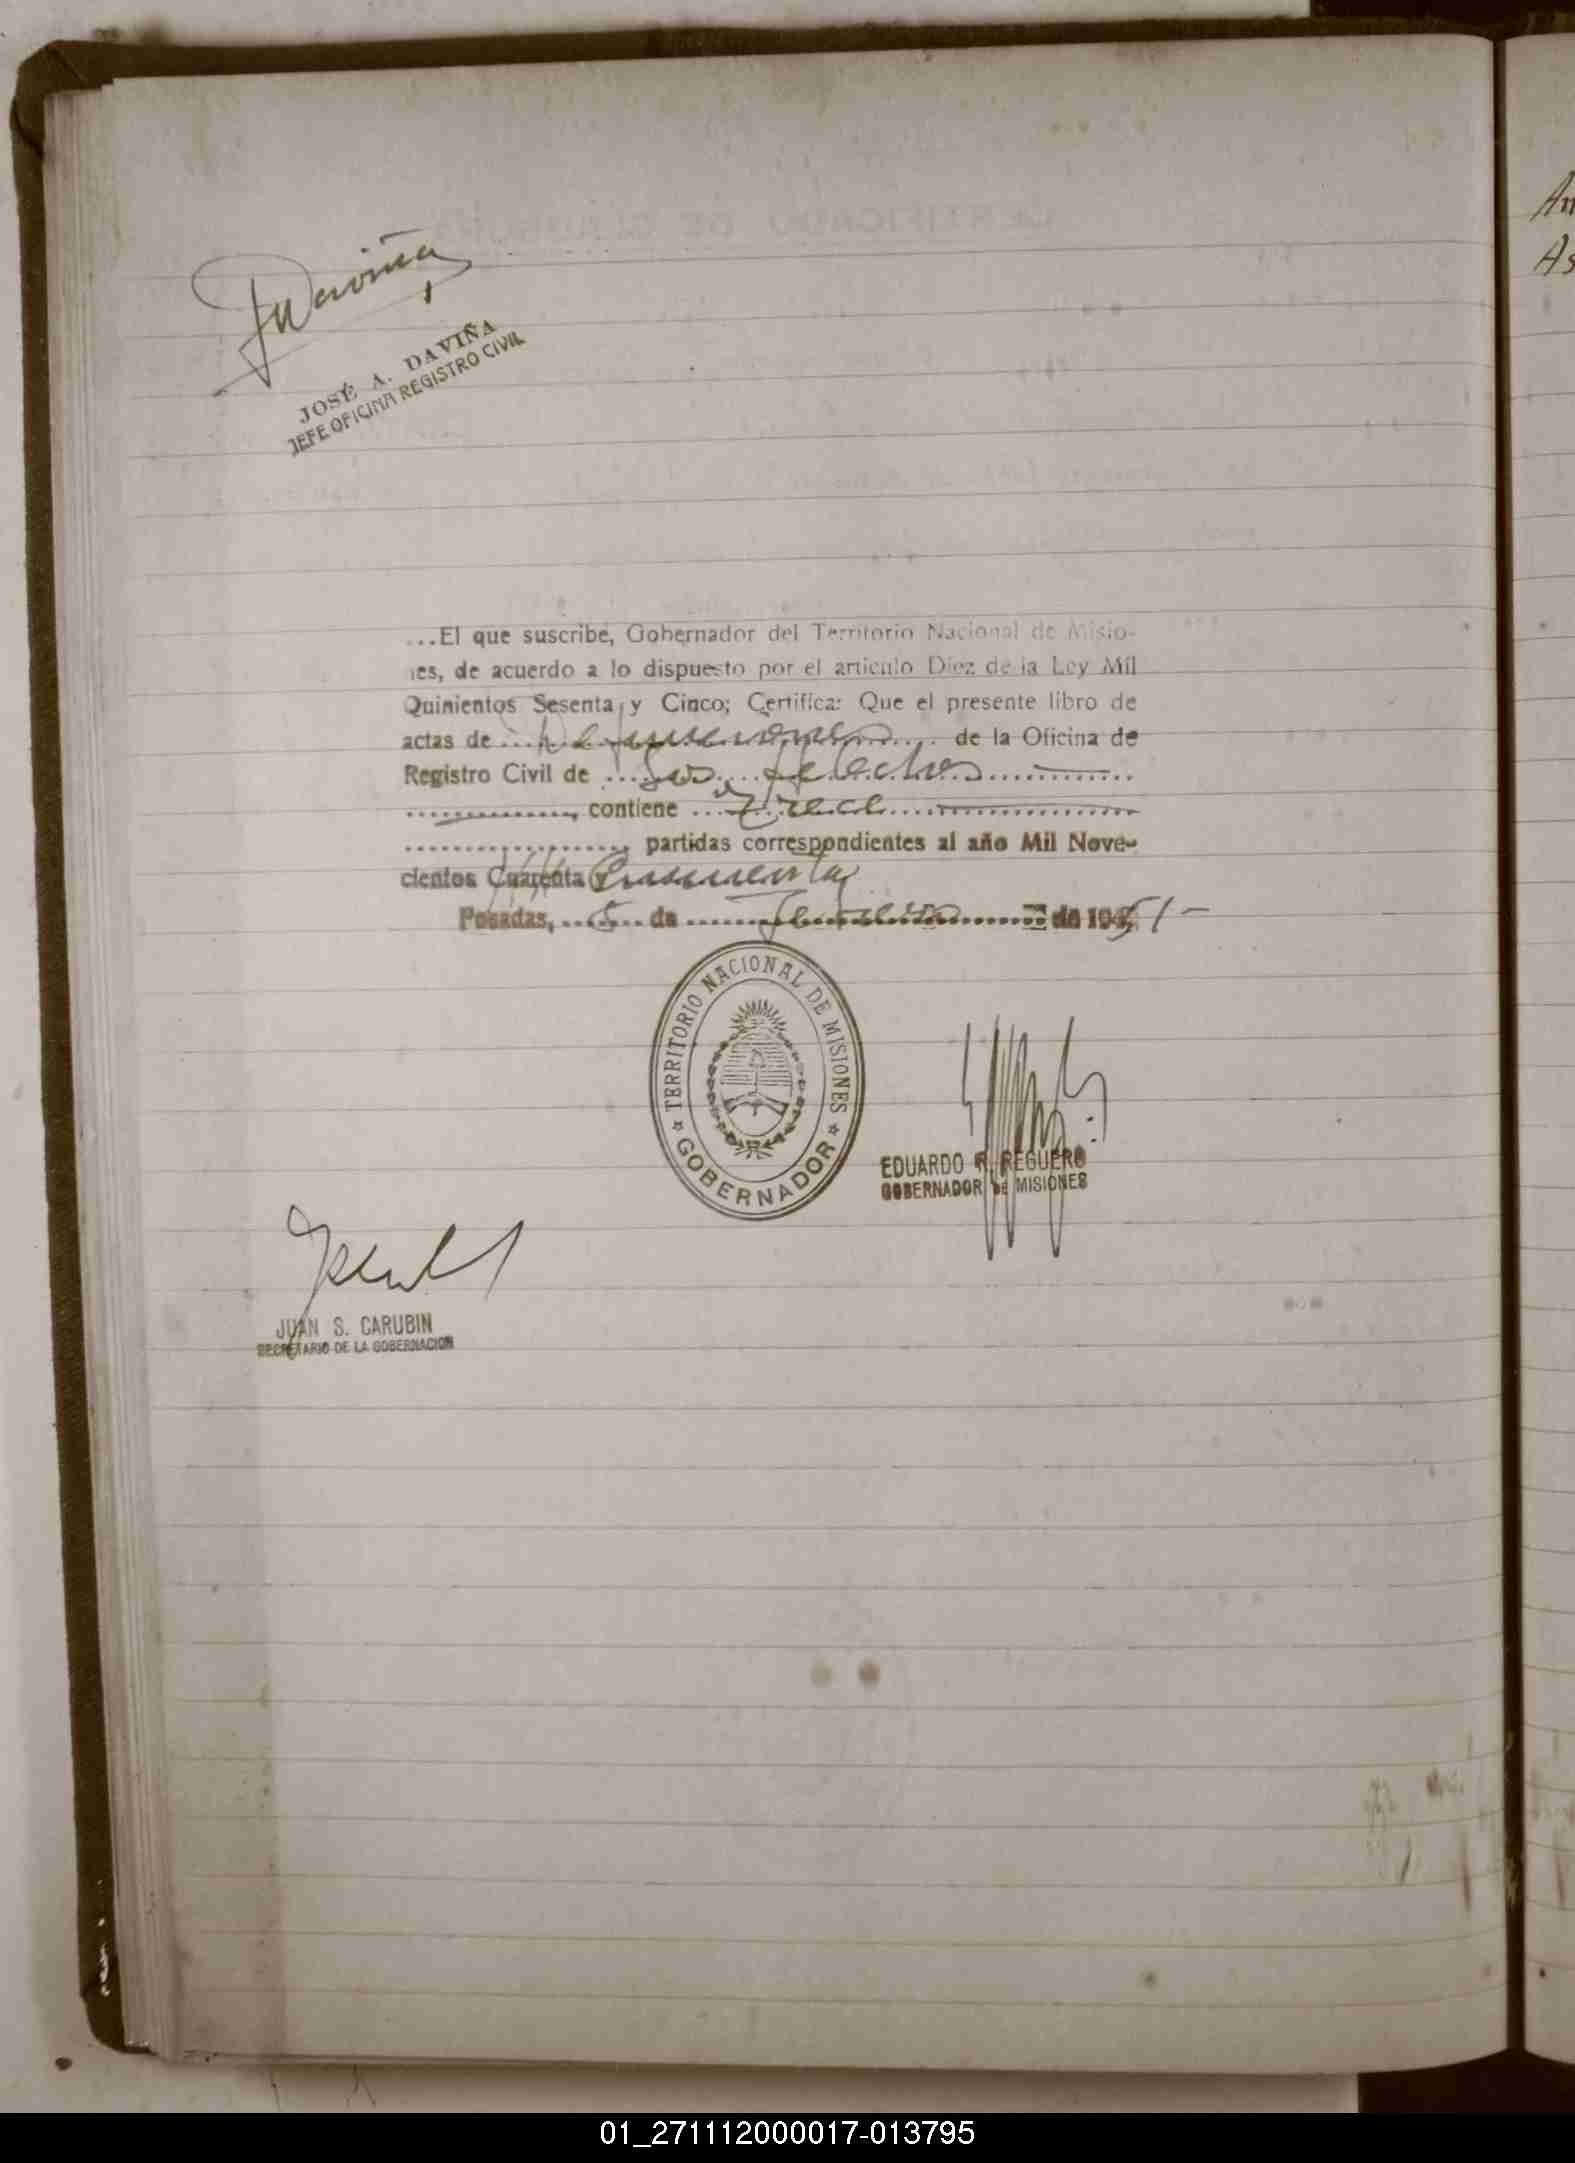 JDaviña
JOSÉ A. DAVIÑA
JEFE OFICINA REGISTRO CIVIL
An
As
...El que suscribe, Gobernador del Territorio Nacional de Misio-
nes, de acuerdo a lo dispuesto por el artículo Diez de la Ley Mil
Quinientos Sesenta y Cinco; Certifica: Que el presente libro de
actas de Defunciones de la Oficina de
Registro Civil de Los Helechos
contiene Trece
partidas correspondientes al año Mil Nove-
cientos Cuarenta y Cincuenta
Posadas, 5 de de 1951-
TERRITORIO NACIONAL DE MISIONES
GOBERNADOR
EDUARDO R. REGUERO
GOBERNADOR DE MISIONES
JUAN S. CARUBIN
SECRETARIO DE LA GOBERNACION
01_271112000017-013795